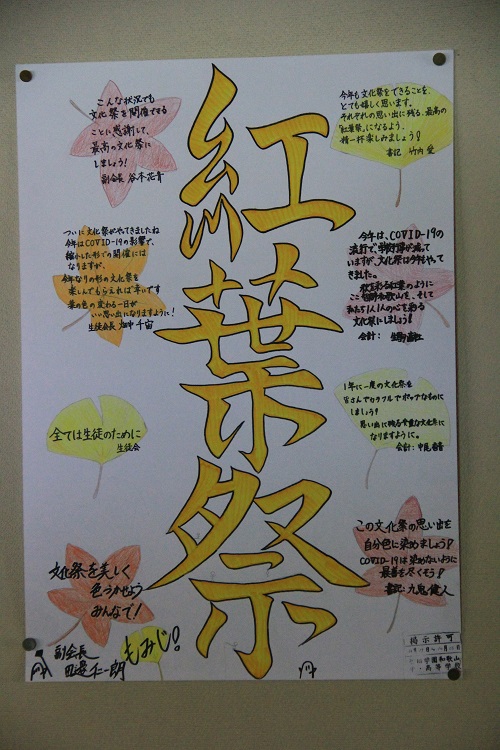 紅葉祭
こんな状況でも
文化祭を開催できる
ことに感謝して、
最高の文化祭に
しましょう!
副会長 谷本花音
今年も文化祭をできることを、
とても嬉しく思います。
それぞれの思い出に残る、最高の
「紅葉祭」になるよう、
精一杯楽しみましょう!
書記 竹内 愛
ついに文化祭がやってきましたね
今年はCOVID-19の影響で、
縮小した形での開催には
なりますが、
今年なりの形の文化祭を
楽しんでもらえれば幸いです
葉の色の変わる一日が
いい思い出になりますように!
生徒会長 畑中 千宙
今年は、COVID-19の
流行で、
いますが、文化祭は今年もやって
きました。
秋を彩る紅葉のように
ここ智辯和歌山を、そして
私たち1人1人の心を彩る
文化祭にしましょう!
会計:
全ては生徒のために
生徒会
1年に一度の文化祭を
皆さんでカラフルでポップなものに
しましょう!
思い出に残る貴重な文化祭に
なりますように。
会計:中尾
この文化祭の思い出を
自分色に染めましょう!
COVID-19は染めないように
最善を尽くそう!
書記:九鬼 健人
文化祭を美しく
色づかせよう
みんなで!
副会長
田邊 仁一朗
もみじ!
掲示許可
学園和歌山
高等学校